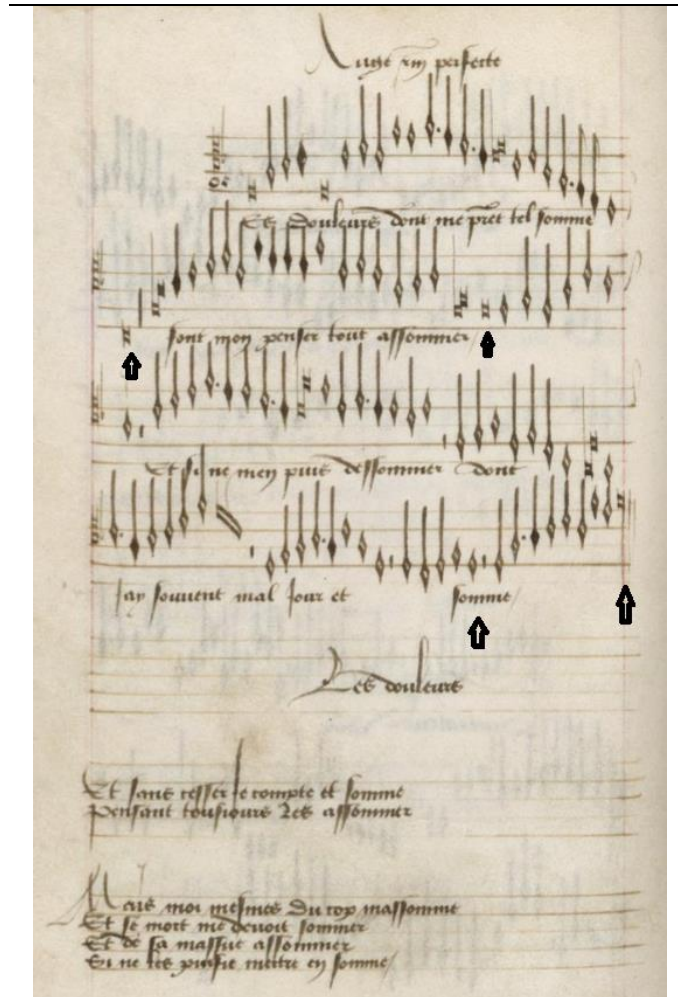 Les douleurs dont me pret tel somme
sont mon penser tout assommer
Et si ne men puis dessommer dont
Jay souvent mal jour et somme
Les douleurs
Et sans cesser je compte et somme
Pensant tousjours les assommer
Mais moi mesmes du cop massomme
Et se mort me devoit sommer
Et de sa massue assommer
Si ne les puisse mettre en somme